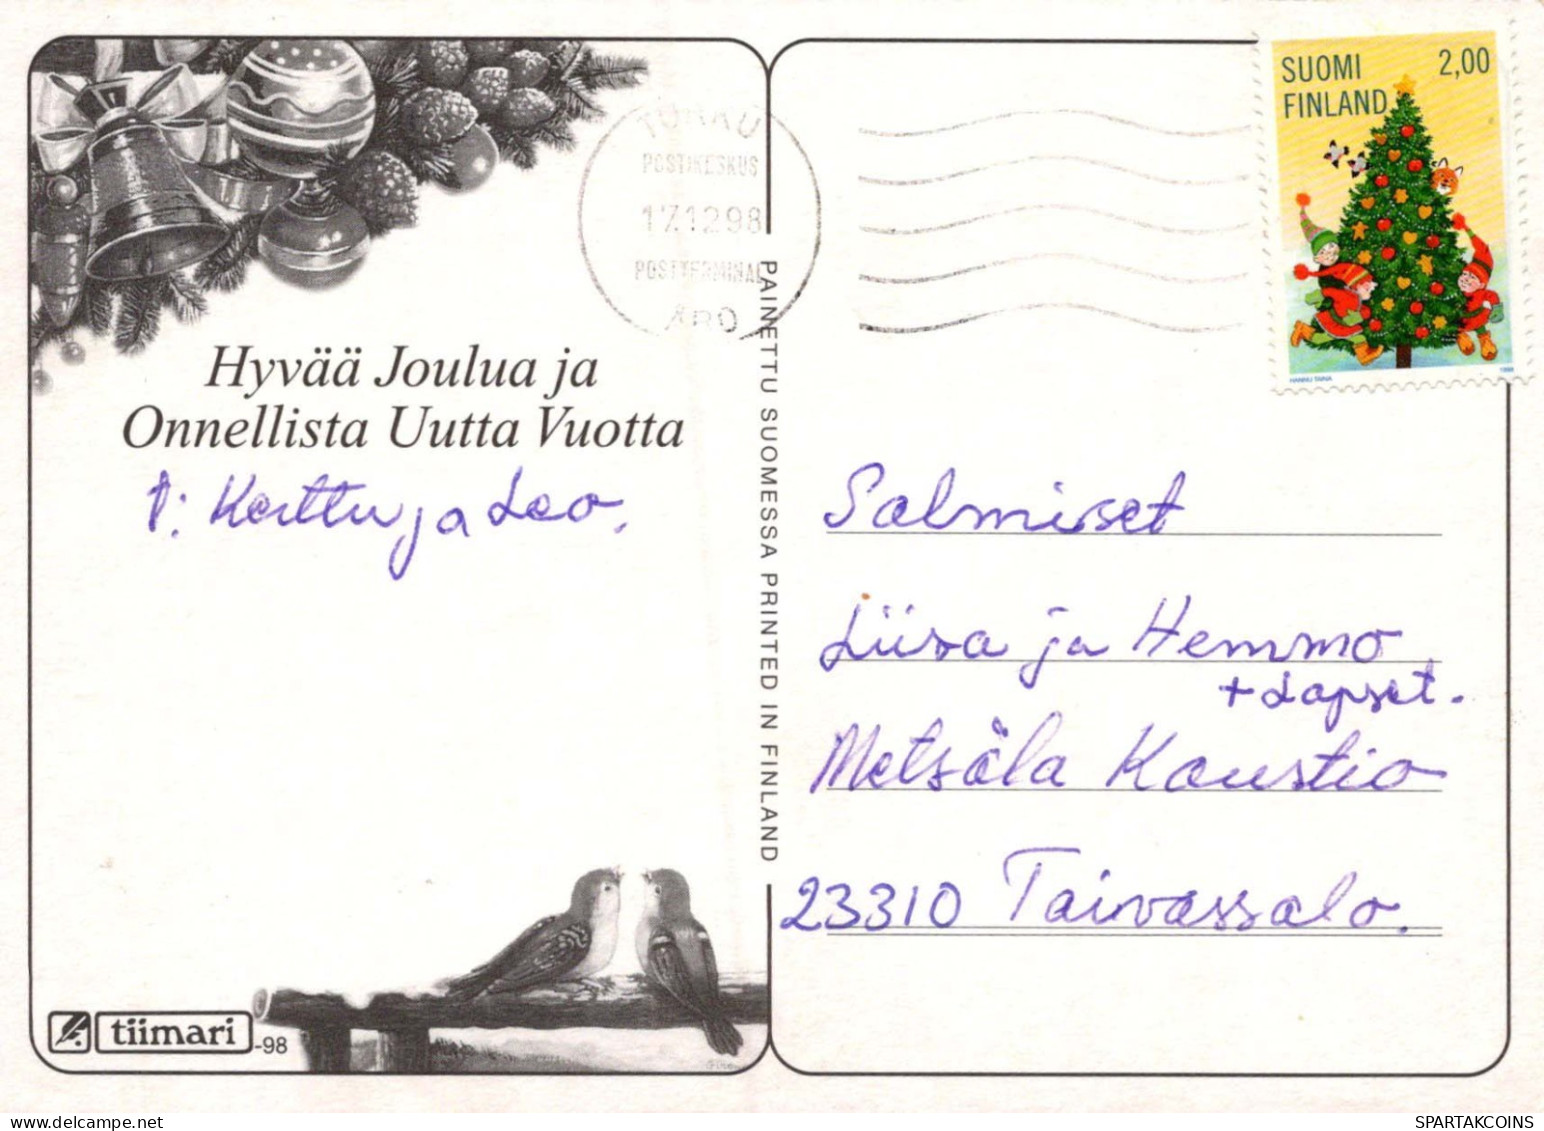 SUOMI 2,00
FINLAND
HANNU TAINA 1998
TURKU
POSTIKESKUS
17.12.98
POSTTERMINAL
ÅBO
Hyvää Joulua ja
Onnellista Uutta Vuotta
t: Kerttu ja Leo.
PAINETTU SUOMESSA PRINTED IN FINLAND
Salmiset
Liisa ja Hemmo
+ Lapset.
Metsäla Kaustio
23310 Taivassalo.
tiimari -98
SPARTAKCOINS